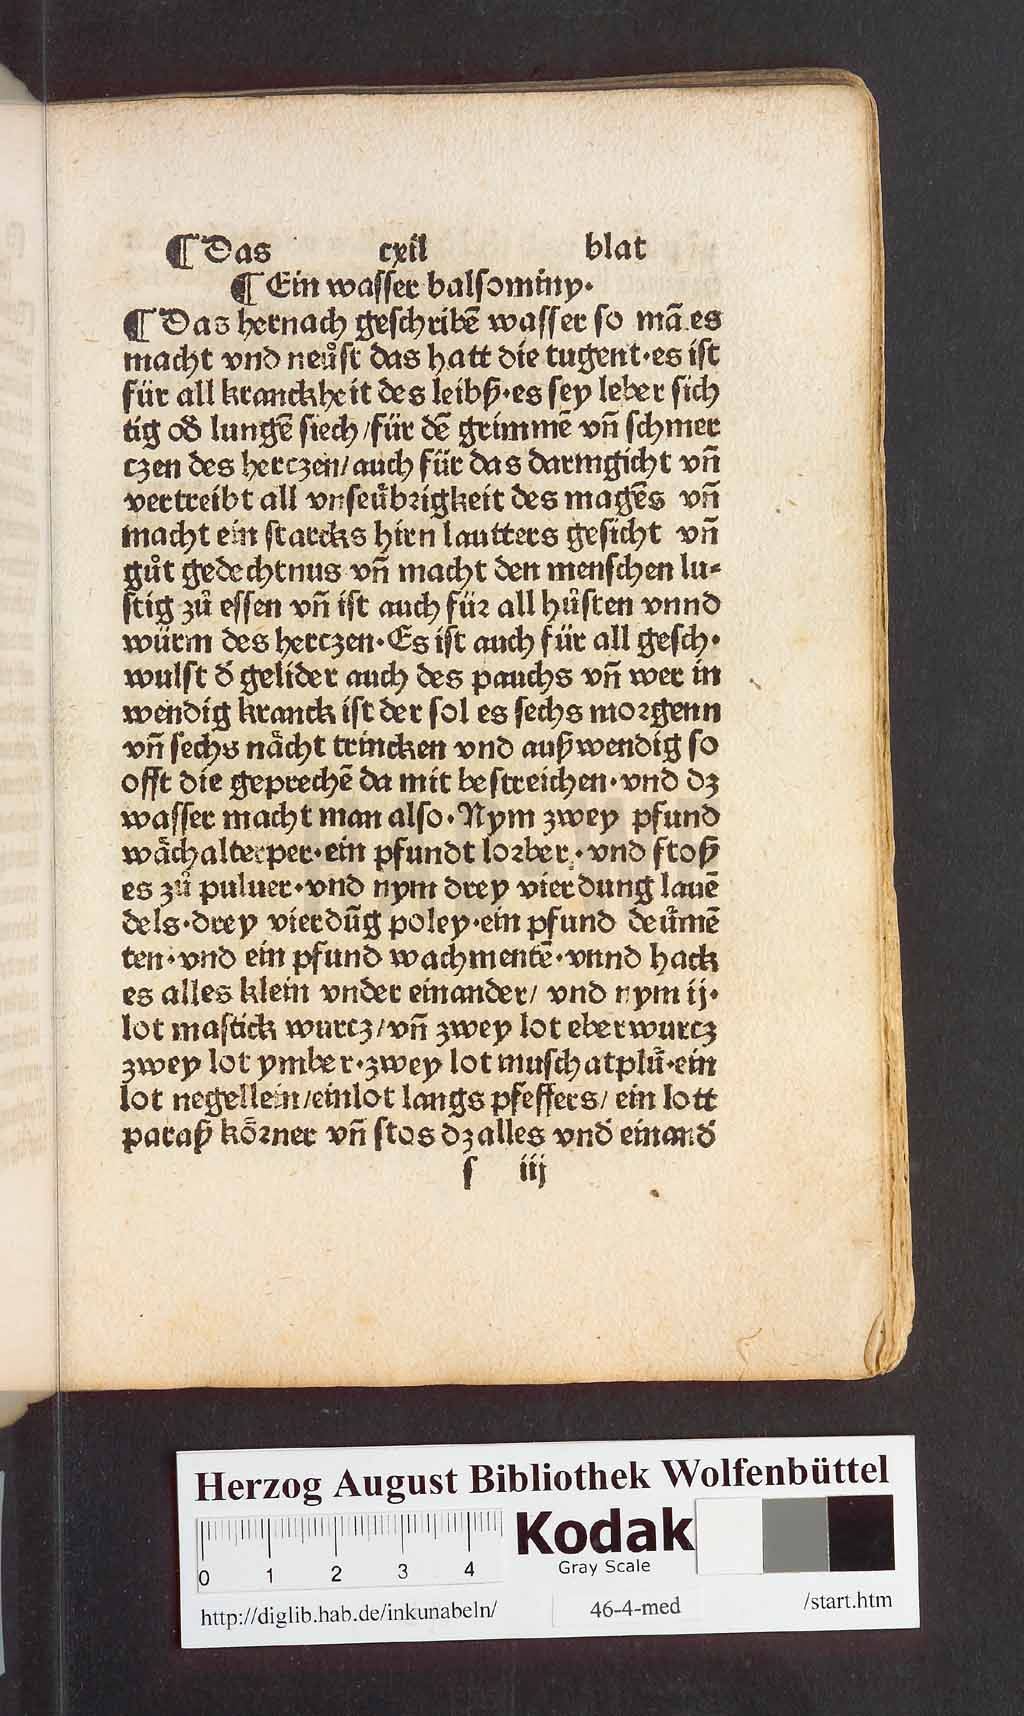 ¶ Das cxil blat
¶ Ein wasser balsominy·
¶ Das hernach geschribē wasser so mā es
macht vnd neůst das hatt die tugent·es ist
für all kranckheit des leibß·es sey leber sich
tig od̕ lungē siech/für dē grimmē vn̄ schmer
czen des herczen/auch für das darmgicht vn̄
vertreibt all vnseübrigkeit des magēs vn̄
macht ein starcks hirn lautters gesicht vn̄
gůt gedechtnus vn̄ macht den menschen lu⸗
stig zů essen vn̄ ist auch für all hůsten vnnd
würm des herczen·Es ist auch für all gesch·
wulst d̕ gelider auch des pauchs vn̄ wer in
wendig kranck ist der sol es sechs morgenn
vn̄ sechs nächt trincken vnd außwendig so
offt die geprechē da mit bestreichen·vnd dz
wasser macht man also·Nym zwey pfund
wächalterper·ein pfundt lorber·vnd stoß
es zů puluer·vnd nym drey vierdung lauē
dels·drey vierdūg poley·ein pfund deümē
ten·vnd ein pfund wachmentē·vnnd hack
es alles klein vnder einander/ vnd nym ij·
lot mastick wurcz/vn̄ zwey lot eberwurcz
zwey lot ymber·zwey lot muschatplů·ein
lot negellein/einlot langs pfeffers/ ein lott
paraß körner vn̄ stos dz alles vnd̕ einand̕
s iij
Herzog August Bibliothek Wolfenbüttel
0 1 2 3 4
Kodak
Gray Scale
http://diglib.hab.de/inkunabeln/ 46-4-med /start.htm